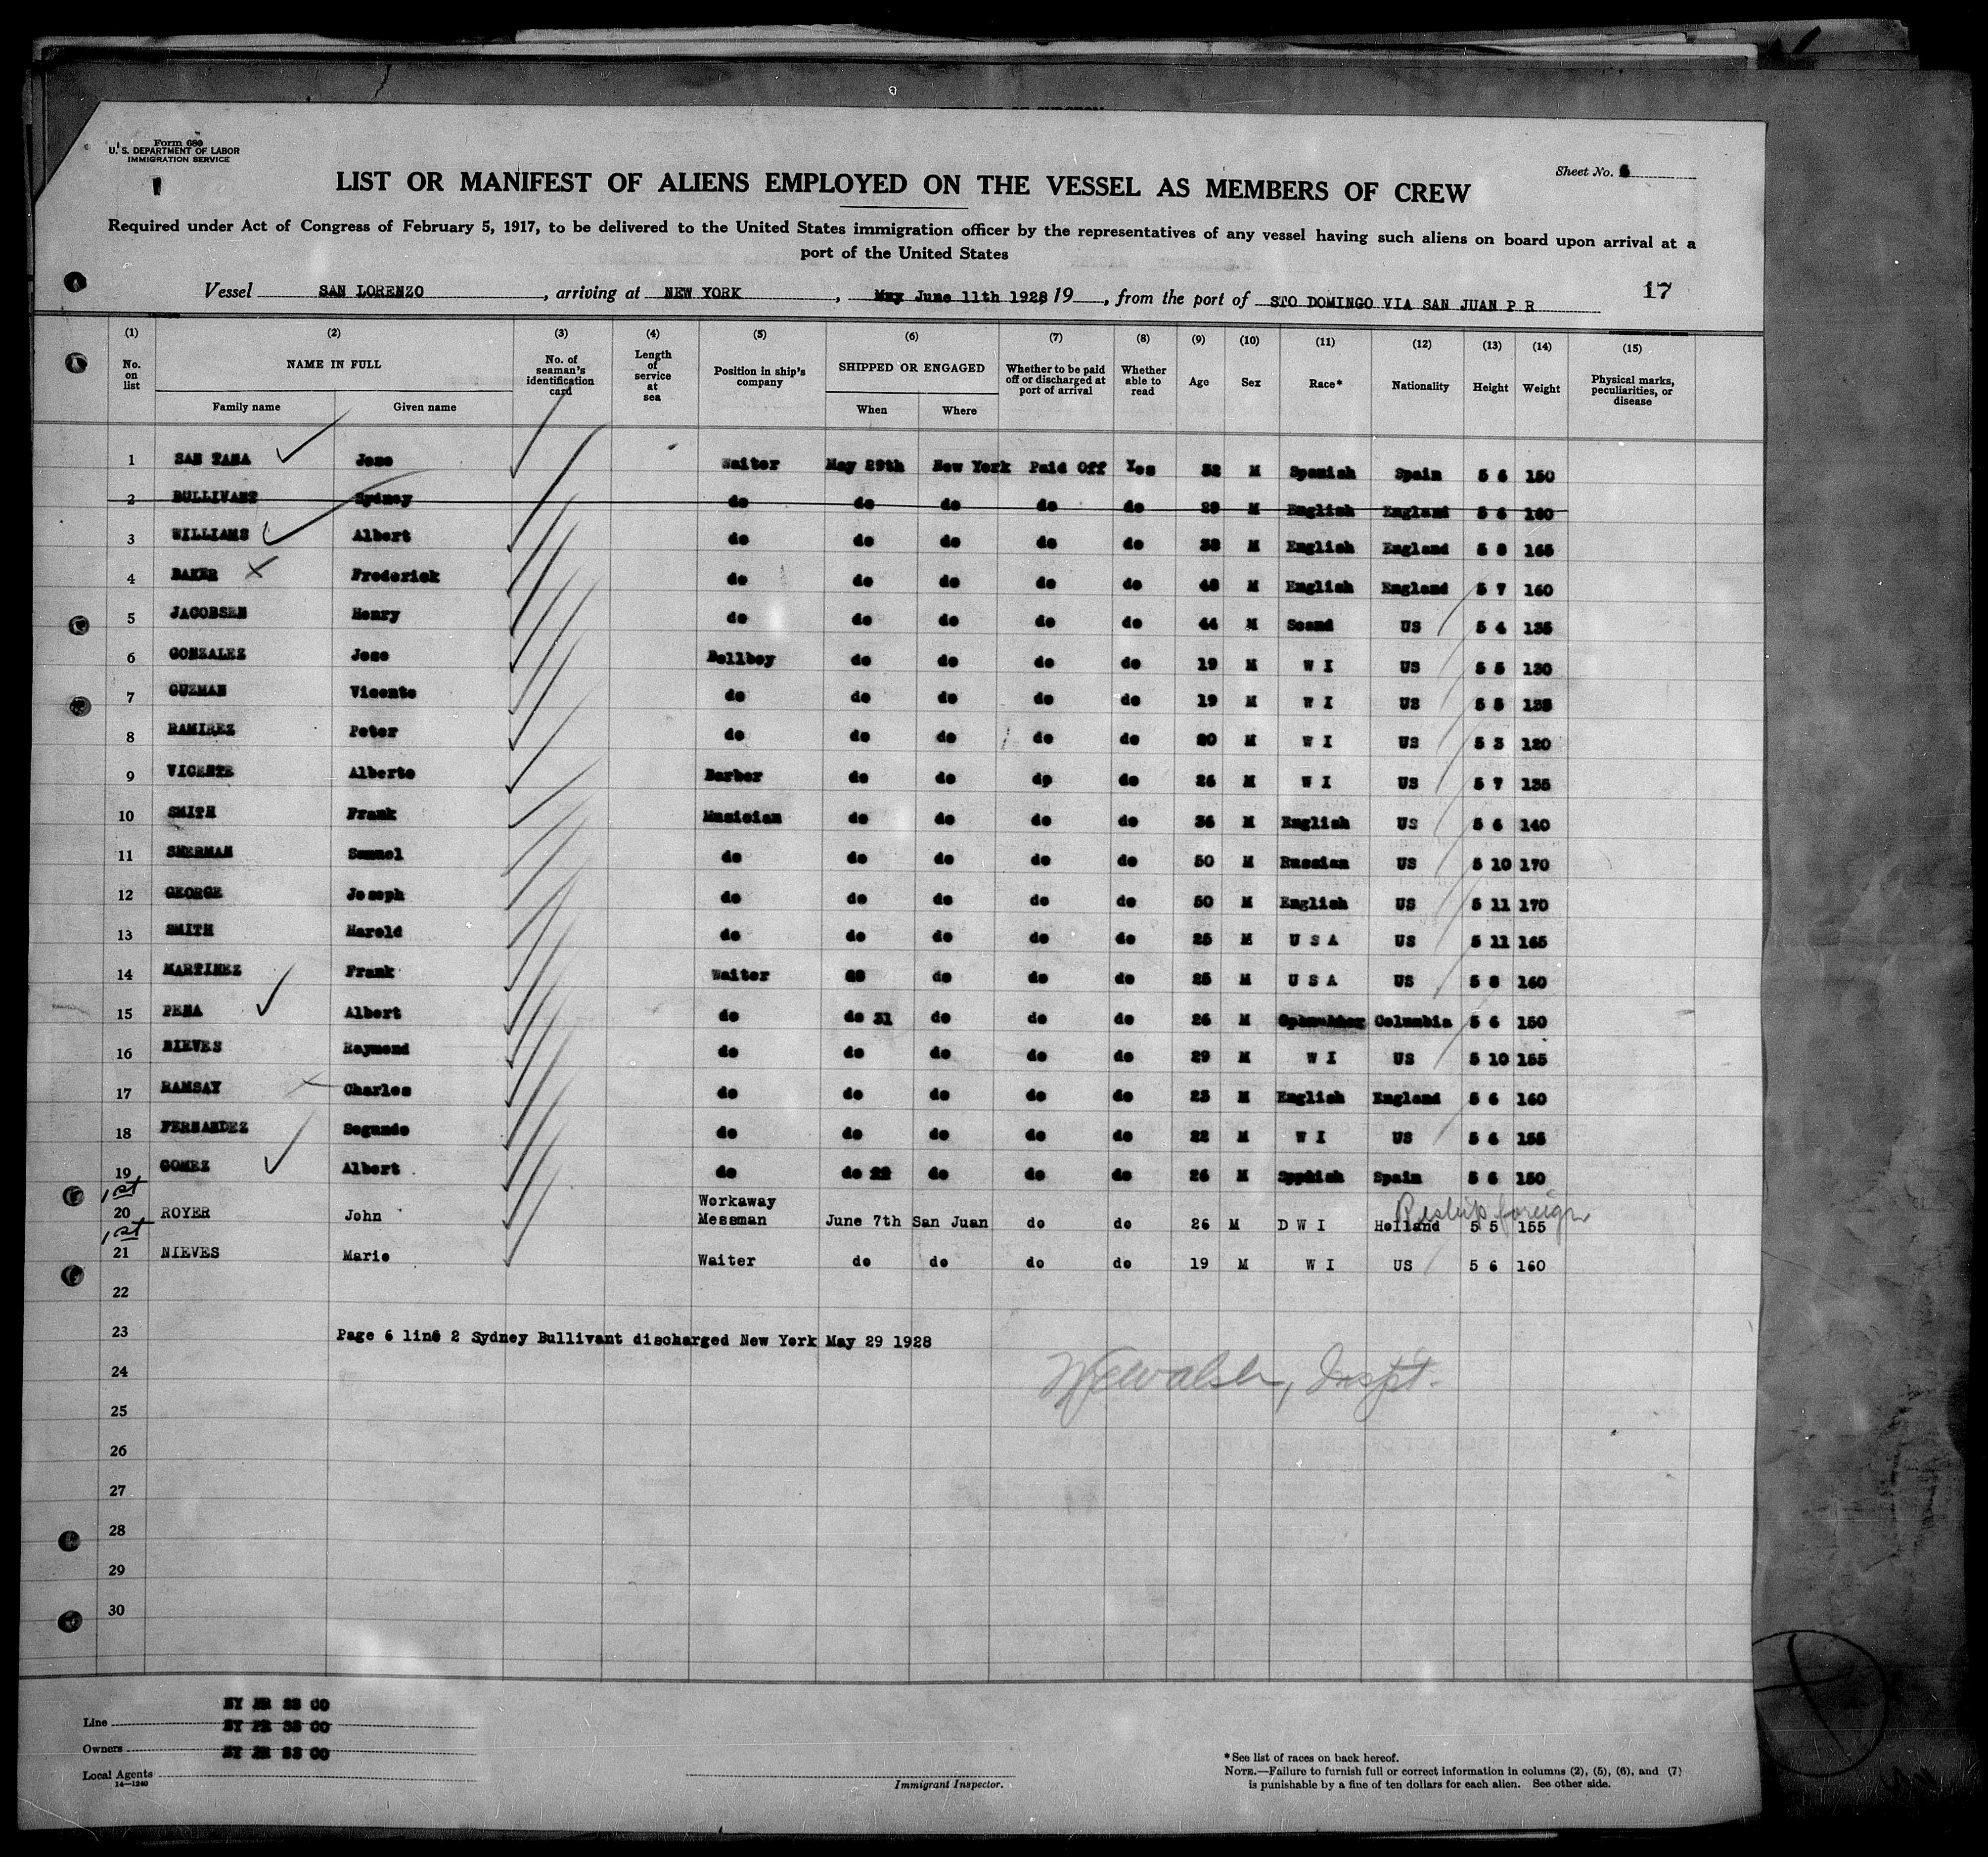 Form 680
U. S. DEPARTMENT OF LABOR
IMMIGRATION SERVICE
Sheet No. 6
LIST OR MANIFEST OF ALIENS EMPLOYED ON THE VESSEL AS MEMBERS OF CREW
Required under Act of Congress of February 5, 1917, to be delivered to the United States immigration officer by the representatives of any vessel having such aliens on board upon arrival at a
port of the United States
Vessel SAN LORENZO, arriving at NEW YORK, May June 11th 1928 19, from the port of STO DOMINGO VIA SAN JUAN P R 17
(1) (2) (3) (4) (5) (6) (7) (8) (9) (10) (11) (12) (13) (14) (15)
No. on list NAME IN FULL Family name Given name No. of seaman's identification card Length of service at sea Position in ship's company SHIPPED OR ENGAGED When Where Whether to be paid off or discharged at port of arrival Whether able to read Age Sex Race* Nationality Height Weight Physical marks, peculiarities, or disease
1 SAN TANA Jose Waiter May 29th New York Paid Off Yes 32 M Spanish Spain 5 6 150
2 BULLIVANT Sydney do do do do do 29 M English England 5 6 160
3 WILLIAMS Albert do do do do do 38 M English England 5 8 165
4 BAKER Frederick do do do do do 48 M English England 5 7 160
5 JACOBSEN Henry do do do do do 44 M Scand US 5 4 135
6 GONZALEZ Jose Bellboy do do do do 19 M W I US 5 5 130
7 GUZMAN Vicente do do do do do 19 M W I US 5 5 135
8 RAMIREZ Peter do do do do do 20 M W I US 5 3 120
9 VICENTE Alberto Barber do do dp do 26 M W I US 5 7 135
10 SMITH Frank Musician do do do do 36 M English US 5 6 140
11 SHERMAN Samuel do do do do do 50 M Russian US 5 10 170
12 GEORGE Joseph do do do do do 50 M English US 5 11 170
13 SMITH Harold do do do do do 25 M U S A US 5 11 165
14 MARTINEZ Frank Waiter do do do do 25 M U S A US 5 8 160
15 PENA Albert do do 31 do do do 26 M Columbia 5 6 150
16 NIEVES Raymond do do do do do 29 M W I US 5 10 155
17 RAMSAY Charles do do do do do 23 M English England 5 6 160
18 FERNANDEZ Segundo do do do do do 22 M W I US 5 6 155
19 GOMEZ Albert do do 22 do do do 26 M Sppnish Spain 5 6 150
1st
20 ROYER John Workaway Messman June 7th San Juan do do 26 M D W I Holland 5 5 155
Reship foreign
1st
21 NIEVES Mario Waiter do do do do 19 M W I US 5 6 160
22
23 Page 6 line 2 Sydney Bullivant discharged New York May 29 1928
24 Walsh, Inspt.
25
26
27
28
29
30
NY PR SS CO
Line NY PR SS CO
Owners NY PR SS CO
Local Agents
14—1240
Immigrant Inspector.
*See list of races on back hereof.
NOTE.—Failure to furnish full or correct information in columns (2), (5), (6), and (7)
is punishable by a fine of ten dollars for each alien. See other side.